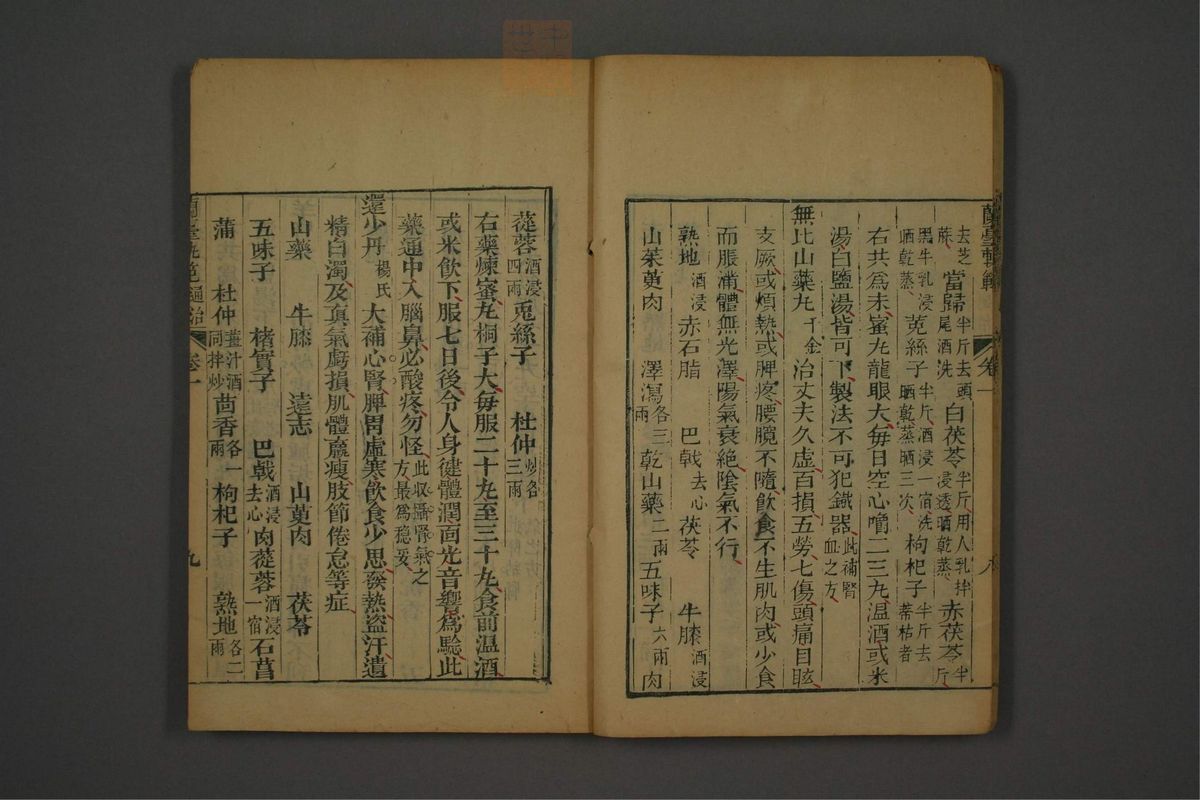 去芝麻 當歸 半斤去頭尾酒洗 白茯苓 半斤用人乳拌浸透晒乾蒸 赤茯苓 半斤
黑牛乳浸晒乾蒸 菟絲子 半斤酒浸一宿洗晒乾蒸晒三次 枸杞子 半斤去蒂枯者
右共爲末蜜丸龍眼大每日空心嚼二三丸温酒或米
湯白鹽湯皆可下製法不可犯鐵器 此補腎血之方
無比山藥丸 千金 治丈夫久虛百損五勞七傷頭痛目眩
支厥或煩熱或脾疼腰髖不隨飲食不生肌肉或少食
而脹滿體無光澤陽氣衰絶陰氣不行
熟地 酒浸 赤石脂 巴戟 去心 茯苓 牛膝 酒浸
山茱萸肉 澤瀉 各三兩 乾山藥 二兩 五味子 六兩 肉
蓯蓉 酒浸四兩 兎絲子 杜仲 炒各三兩
右藥煉蜜丸桐子大每服二十丸至三十丸食前温酒
或米飲下服七日後令人身健體潤面光音響爲驗此
藥通中入腦鼻必酸疼勿怪 此收攝腎氣之方最爲穏妥
還少丹 楊氏 大補心腎脾胃虛寒飲食少思發熱盜汗遺
精白濁及真氣虧損肌體羸瘦肢節倦怠等症
山藥 牛膝 遠志 山萸肉 茯苓
五味子 楮實子 巴戟 酒浸去心 肉蓯蓉 酒浸一宿 石菖
蒲 杜仲 薑汁酒同拌炒 茴香 各一兩 枸杞子 熟地 各二兩
蘭臺軌範 通治 卷一 九
卷一 八